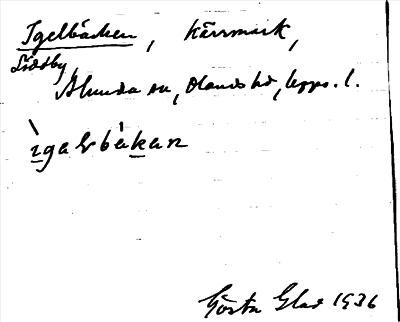 Igelbäcken, kärrmark,
Södsby
Alunda sn, Olands hd, Upps. l.
ìgalbákan
Gösta Glad 1936